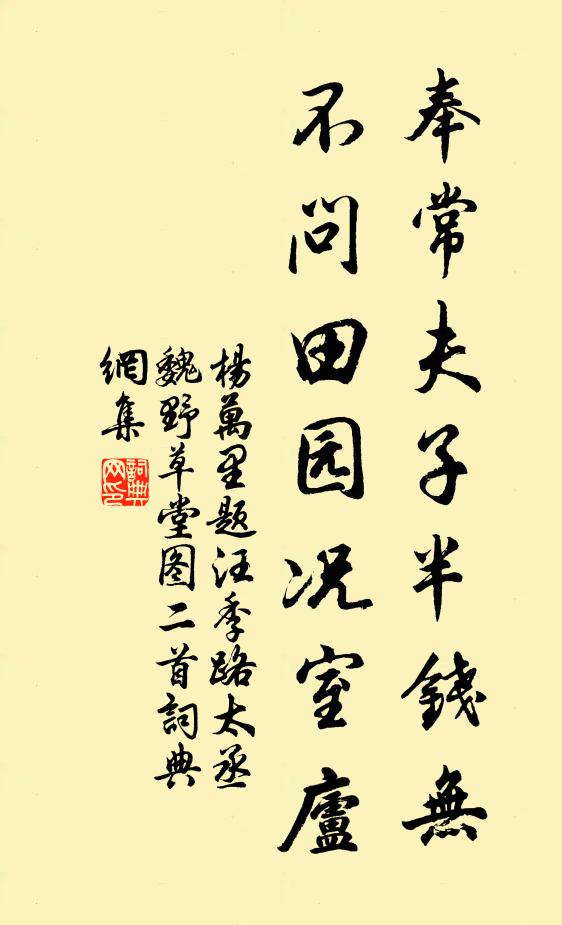 奉常夫子半錢無
不问田园况室廬
楊萬里题汪季路太丞
魏野草堂图二首詞典
網集
詞典网印